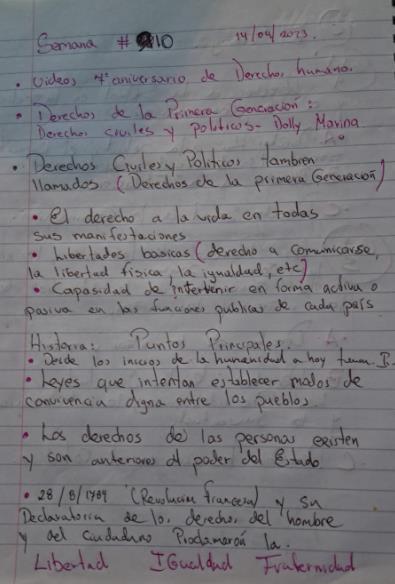 Semana # 10 14/04/2023.
• videos 7° aniversario de Derechos humano.
• Derechos de la Primera Generación:
Derechos civiles y politicos - Dolly Marina
• Derechos Civiles y Politicos tambien
llamados (Derechos de la primera Generación)
• El derecho a la vida en todas
sus manifestaciones
• Libertades basicas (derecho a comunicarse,
la libertad fisica, la igualdad, etc)
• Capasidad de intervenir en forma activa o
pasiva en las funciones publicas de cada país
Historia: Puntos Principales.
• Desde los inicios de la humanidad a hoy
• Leyes que intentan establecer modos de
convivencia digna entre los pueblos.
• Los derechos de las personas existen
y son anteriores al poder del Estado
• 28/8/1789 (Revolucion francesa) y su
Declaratoria de los derechos del hombre
y del ciudadano Proclamarón la.
Libertad IGualdad Fraternidad